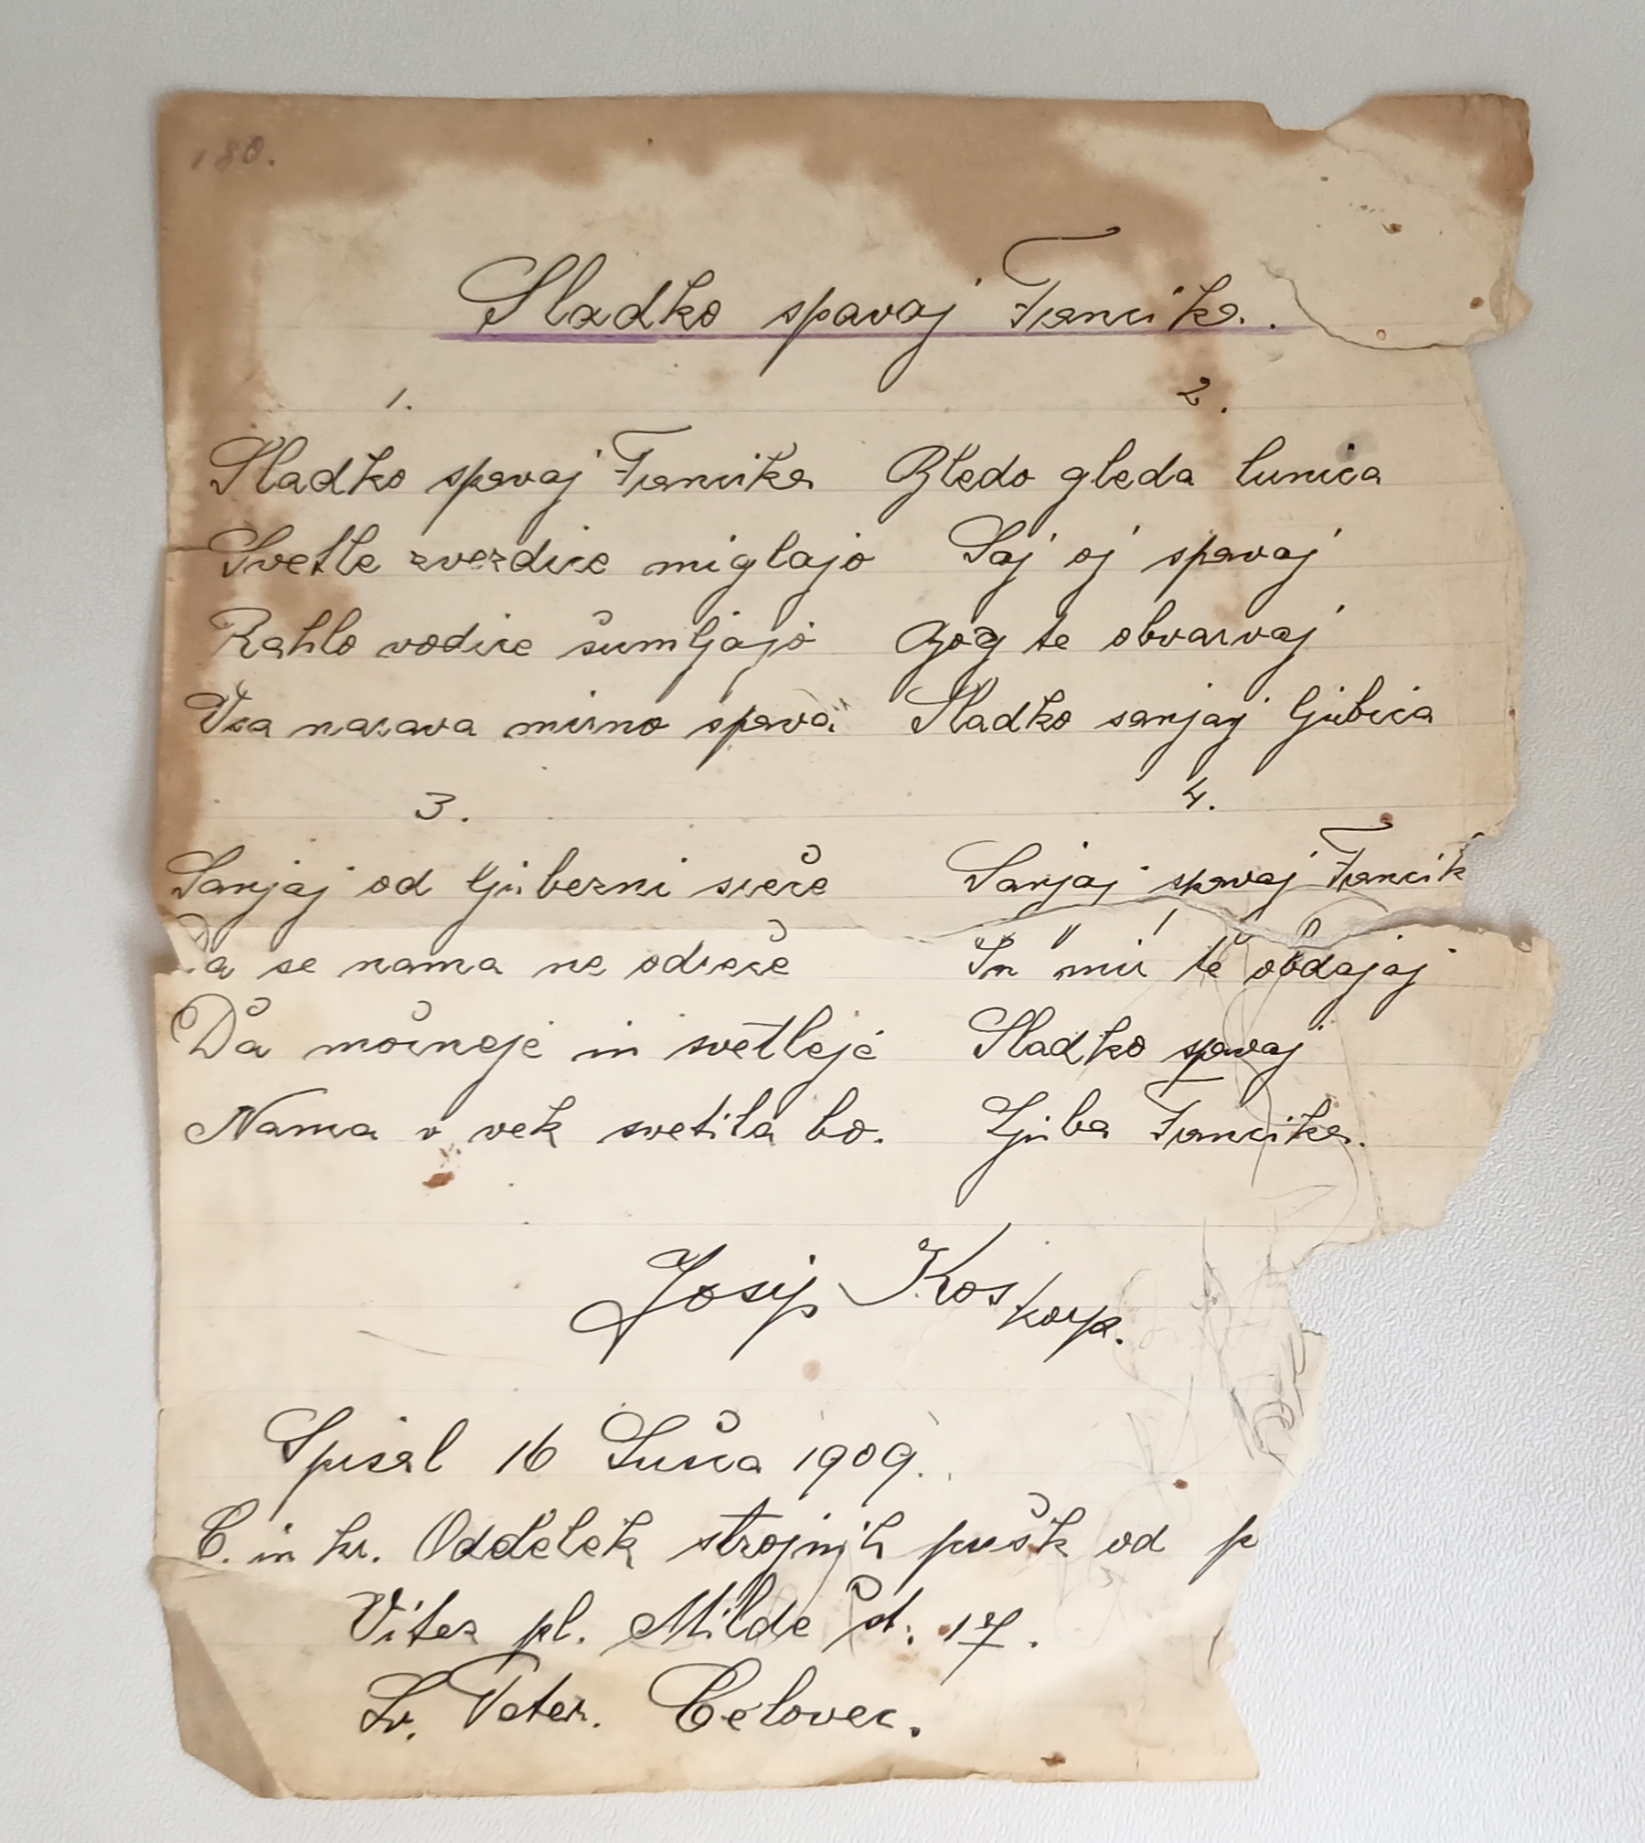 180.
Sladko spavaj Francika.
1.
Sladko spavaj Francika
Svetle zvezdice miglajo
Rahlo vodice šumljajo
Vsa narava mirno spava.
2.
Bledo gleda lunica
Saj oj spavaj
Bog te obvarvaj
Sladko sanjaj ljubica
3.
Sanjaj od ljubezni sveče
Da se nama ne odreče
Da močneje in svetleje
Nama v vek svetila bo.
4.
Sanjaj spavaj Francik
In mir te obdajaj
Sladko spavaj
Ljuba Francika.
Josip Kos korp.
Spisal 16 Sušca 1909.
C. in kr. Oddelek strojnih pušk od p
Vitez pl. Milde št. 17.
Sv. Peter. Celovec.